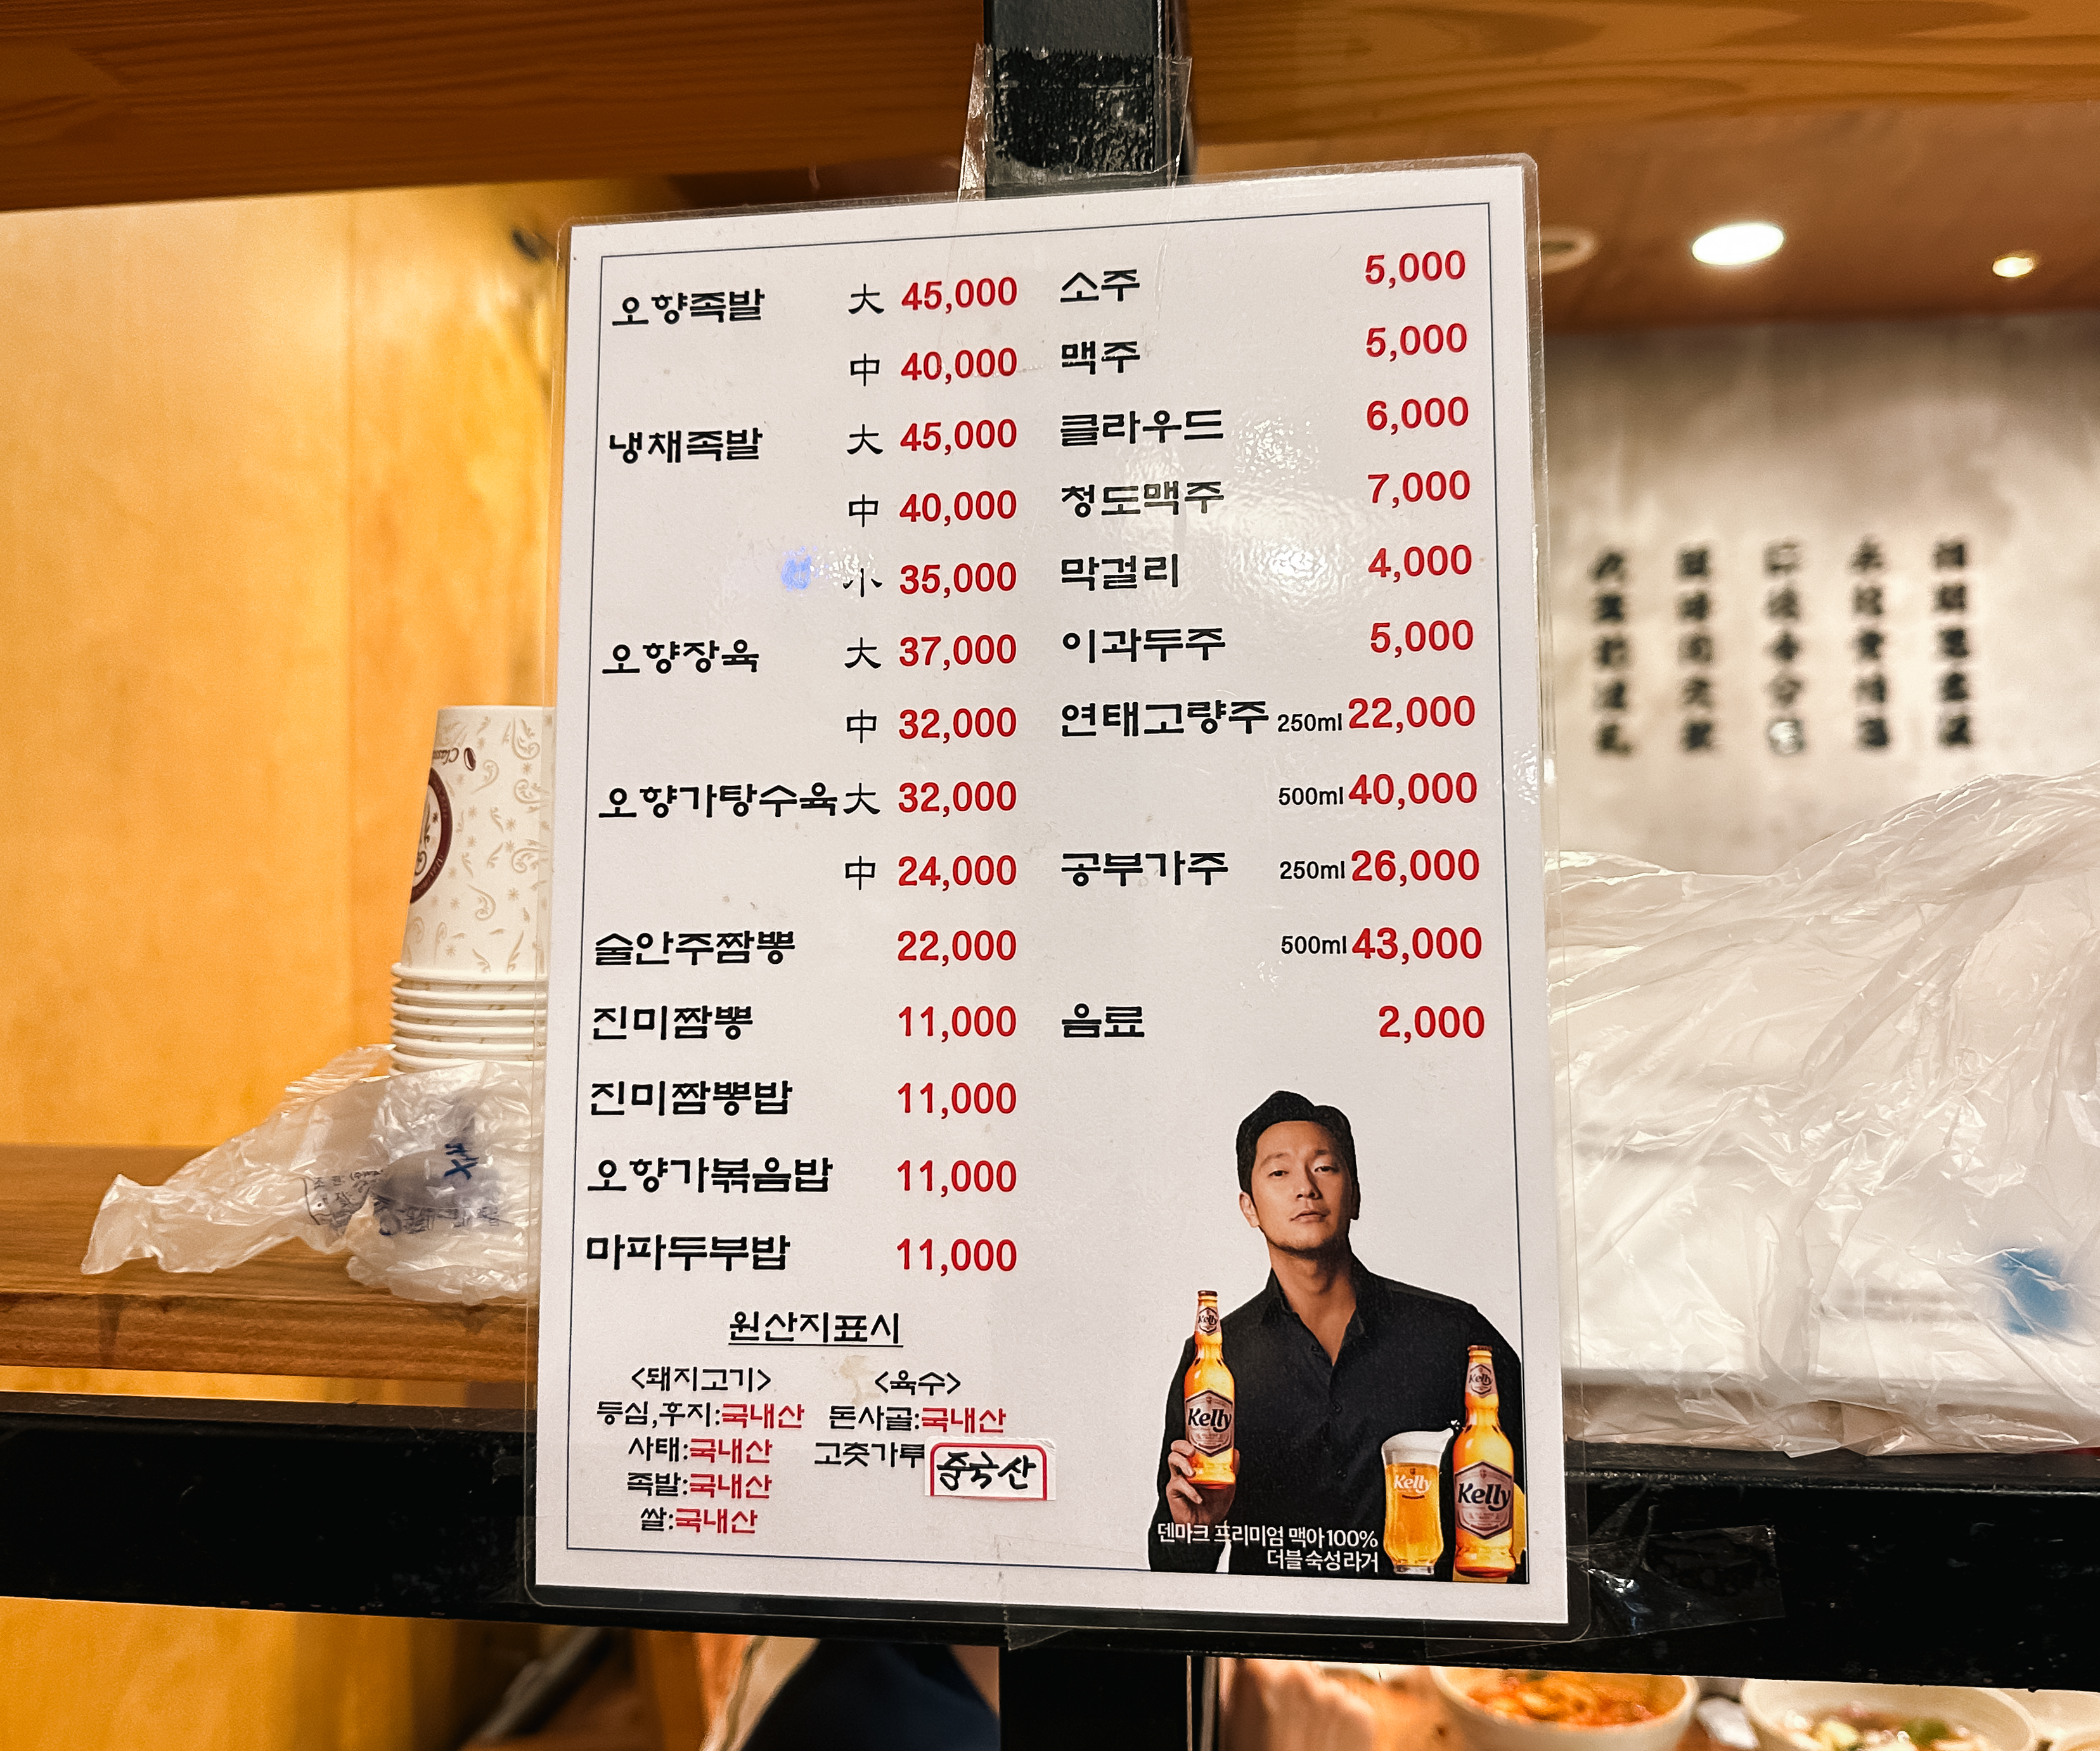 오향족발 大 45,000
中 40,000
냉채족발 大 45,000
中 40,000
小 35,000
오향장육 大 37,000
中 32,000
오향가탕수육 大 32,000
中 24,000
술안주짬뽕 22,000
진미짬뽕 11,000
진미짬뽕밥 11,000
오향가볶음밥 11,000
마파두부밥 11,000
소주 5,000
맥주 5,000
클라우드 6,000
청도맥주 7,000
막걸리 4,000
이과두주 5,000
연태고량주 250ml 22,000
500ml 40,000
공부가주 250ml 26,000
500ml 43,000
음료 2,000
원산지표시
<돼지고기>
등심,후지:국내산
사태:국내산
족발:국내산
쌀:국내산
<육수>
돈사골:국내산
고춧가루 중국산
Kelly
Kelly
Kelly
Kelly
Kelly
덴마크 프리미엄 맥아 100%
더블 숙성 라거